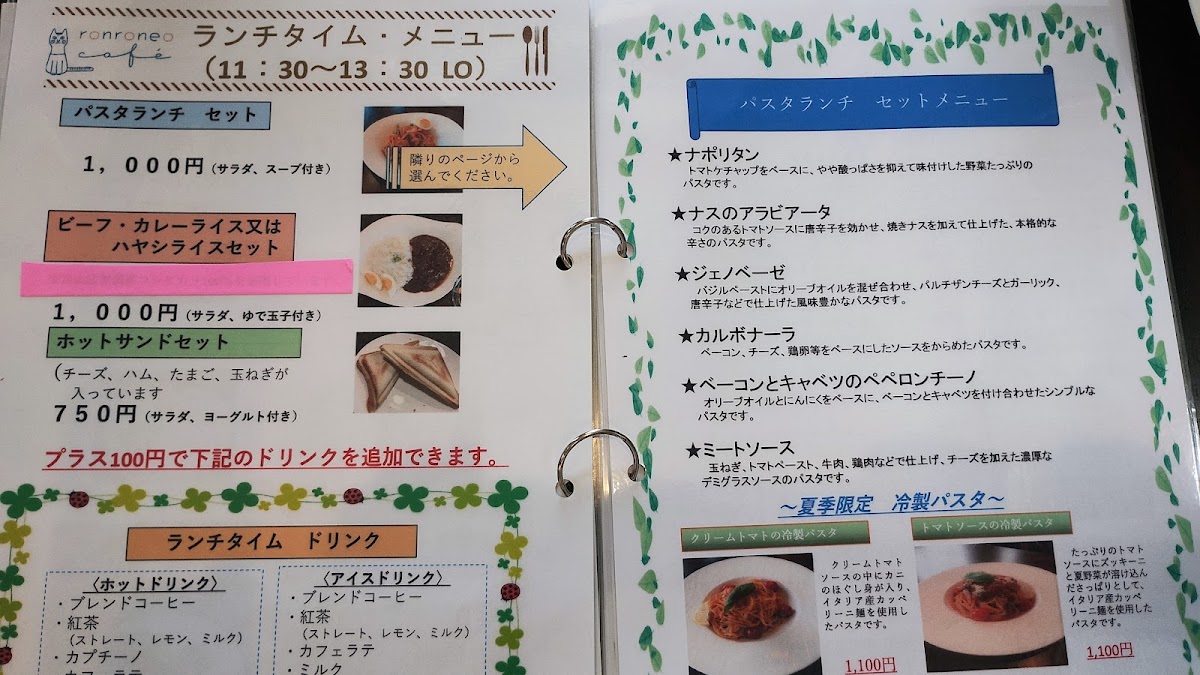 ronroneo
café
ランチタイム・メニュー
（11：30～13：30 LO）
パスタランチ　セット
1，000円（サラダ、スープ付き）
隣りのページから
選んでください。
ビーフ・カレーライス又は
ハヤシライスセット
1，000円（サラダ、ゆで玉子付き）
ホットサンドセット
（チーズ、ハム、たまご、玉ねぎが
入っています
750円（サラダ、ヨーグルト付き）
プラス100円で下記のドリンクを追加できます。
ランチタイム　ドリンク
〈ホットドリンク〉
・ブレンドコーヒー
・紅茶
（ストレート、レモン、ミルク）
・カプチーノ
・カフェラテ
〈アイスドリンク〉
・ブレンドコーヒー
・紅茶
（ストレート、レモン、ミルク）
・カフェラテ
・ミルク
パスタランチ　セットメニュー
★ナポリタン
トマトケチャップをベースに、やや酸っぱさを抑えて味付けした野菜たっぷりの
パスタです。
★ナスのアラビアータ
コクのあるトマトソースに唐辛子を効かせ、焼きナスを加えて仕上げた、本格的な
辛さのパスタです。
★ジェノベーゼ
バジルペーストにオリーブオイルを混ぜ合わせ、パルチザンチーズとガーリック、
唐辛子などで仕上げた風味豊かなパスタです。
★カルボナーラ
ベーコン、チーズ、鶏卵等をベースにしたソースをからめたパスタです。
★ベーコンとキャベツのペペロンチーノ
オリーブオイルとにんにくをベースに、ベーコンとキャベツを付け合わせたシンプルな
パスタです。
★ミートソース
玉ねぎ、トマトペースト、牛肉、鶏肉などで仕上げ、チーズを加えた濃厚な
デミグラスソースのパスタです。
～夏季限定　冷製パスタ～
クリームトマトの冷製パスタ
クリームトマト
ソースの中にカニ
のほぐし身が入り、
イタリア産カッペ
リーニ麺を使用し
たパスタです。
1,100円
トマトソースの冷製パスタ
たっぷりのトマト
ソースにズッキーニ
と夏野菜が溶け込ん
ださっぱりとして、
イタリア産カッペ
リーニ麺を使用した
パスタです。
1,100円